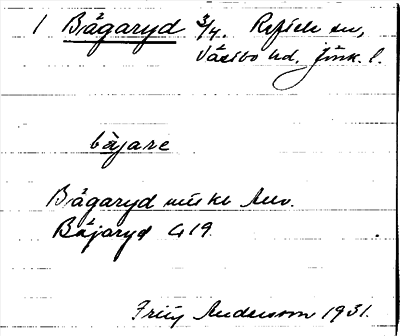 1 Bågaryd 3/4. Reftele sn,
Västbo hd. Jönk. l.
båjare
Bågaryd
Båjaryd G 19.
Fritz Andersson 1931.